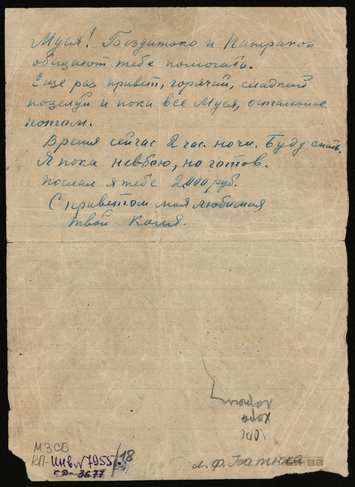 Муся! Бездитко и Патраков
обещают тебе помогать.
Еще раз привет, горячий, сладкий
поцелуй и пока все Муся, остальное
потом.
Время сейчас 2 час. ночи. Буду спать.
Я пока невбою, но готов.
Послал я тебе 2.000 руб.
С приветом моя любимая
твой Коля.
МЗСБ
КП-Инв № 7955/18
СД-3677
л. ф.